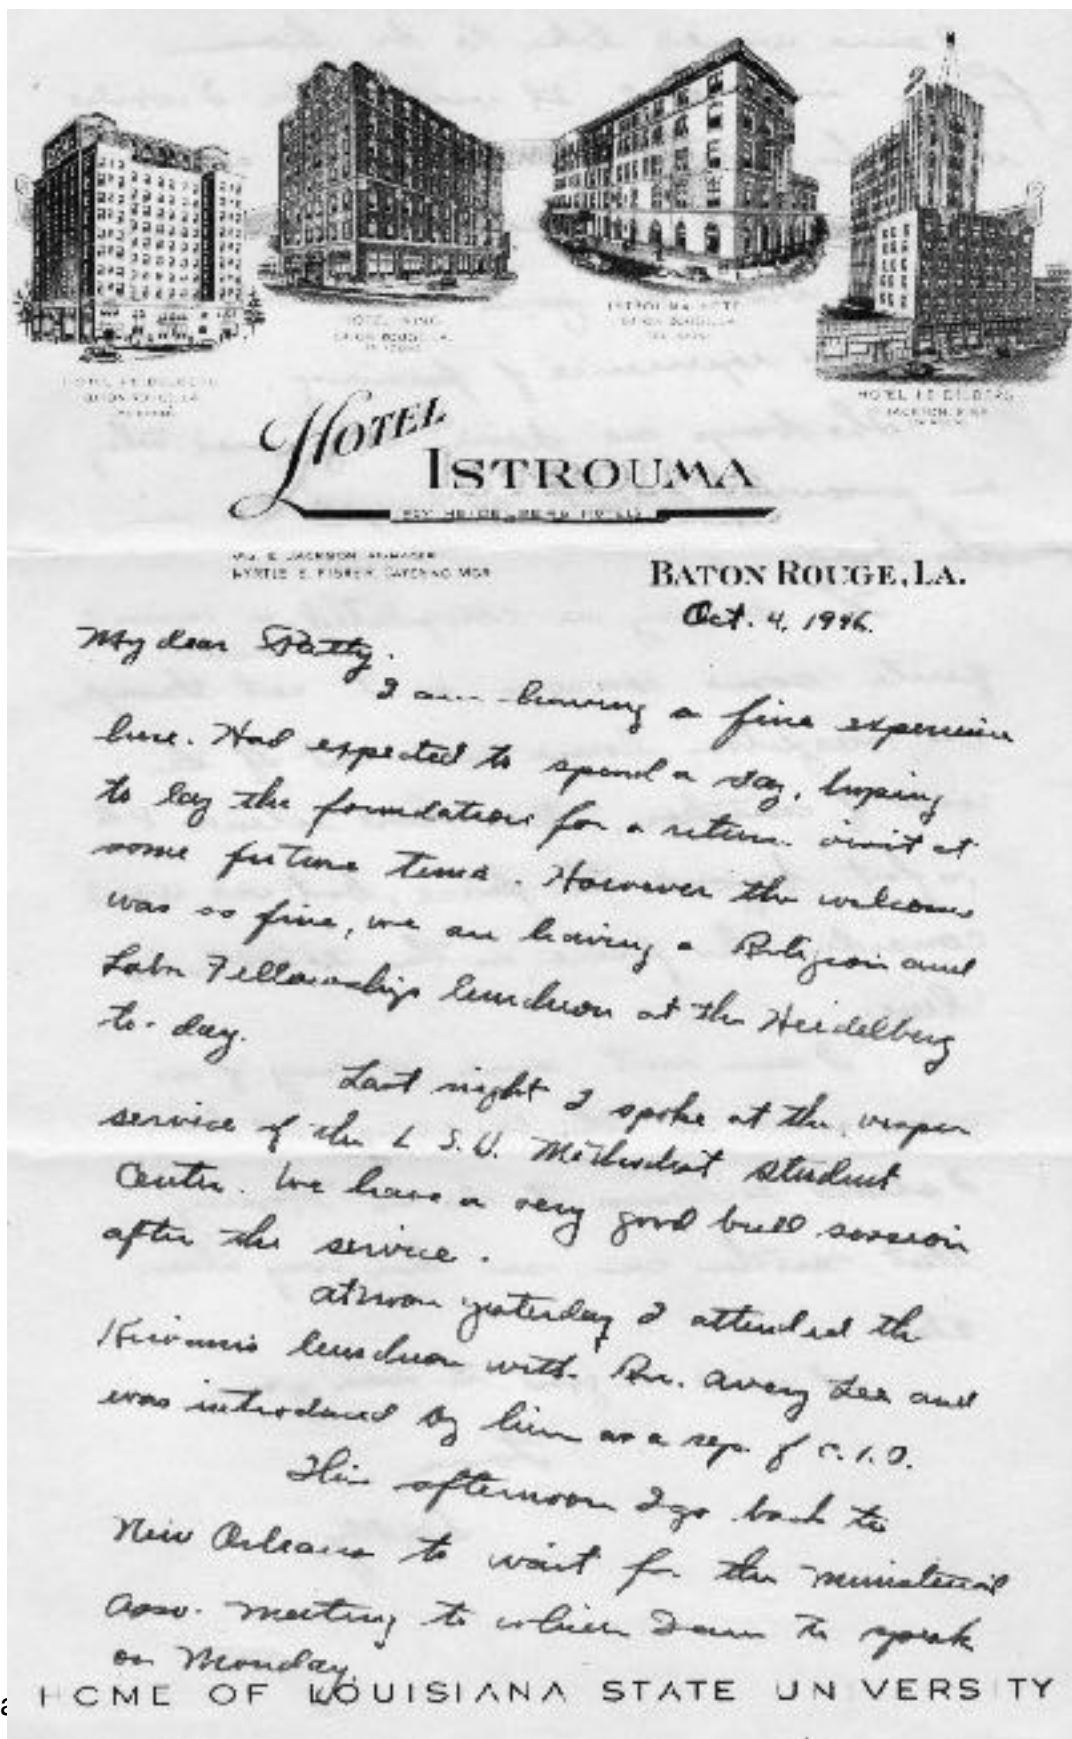 HOTEL HEIDELBERG
BATON ROUGE, LA.
HOTEL KING
BATON ROUGE, LA.
ISTROUMA HOTEL
BATON ROUGE, LA.
HOTEL HEIDELBERG
JACKSON, MISS.
HOTEL
ISTROUMA
ROY HEIDELBERG HOTELS
JACKSON, MANAGER
MYRTLE E. FISHER, CATERING MGR
BATON ROUGE, LA.
Oct. 4, 1946.
My dear Patty.
I am having a fine experience
here. Had expected to spend a day, hoping
to lay the foundations for a return visit at
some future time. However the welcome
was so fine, we are having a Religion and
Labor Fellowship luncheon at the Heidelberg
to-day.
Last night I spoke at the vesper
service of the L.S.U. Methodist Student
Center. We have a very good bull session
after the service.
At noon yesterday I attended the
Kiwanis luncheon with Avery Lee and
was introduced by him as a rep. of C.I.O.
This afternoon I go back to
New Orleans to wait for the ministerial
Asso. meeting to which I am to speak
on Monday.
HOME OF LOUISIANA STATE UNIVERSITY